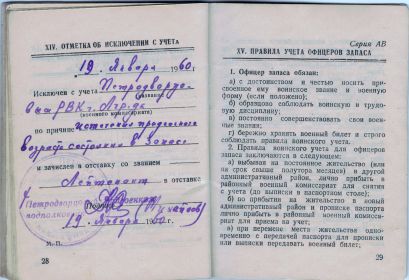 XIV. ОТМЕТКА ОБ ИСКЛЮЧЕНИИ С УЧЕТА
19 Января 1960 г.
Исключен с учета Петродворцо-
(название)
вым РВК г. Л-града
(военного комиссариата)
по причине
возраст состояния в запасе
и зачислен в отставку со званием
Лейтенант в отставке
Петродворцо
подполковник
19 Января 1960 г.
М.П.
28
Серия АВ
XV. ПРАВИЛА УЧЕТА ОФИЦЕРОВ ЗАПАСА
1. Офицер запаса обязан:
а) с достоинством и честью носить при-
своенное ему воинское звание и военную
форму (если положено);
б) образцово соблюдать воинскую и трудо-
вую дисциплину;
в) постоянно совершенствовать свои воен-
ные знания;
г) бережно хранить военный билет и строго
соблюдать правила воинского учета.
2. Правила воинского учета для офицеров
запаса заключаются в следующем:
а) выбывая на постоянное жительство (или
на срок свыше полутора месяцев) в другой
административный район, лично прибыть в
районный военный комиссариат для снятия
с учета (до выписки в паспортном столе);
б) по прибытии на жительство в новый
административный район и прописке паспорта
лично прибыть в районный военный комис-
сариат для приема на учет;
в) при перемене места жительства одно-
временно с передачей паспорта для прописки
или выписки передавать военный билет;
29